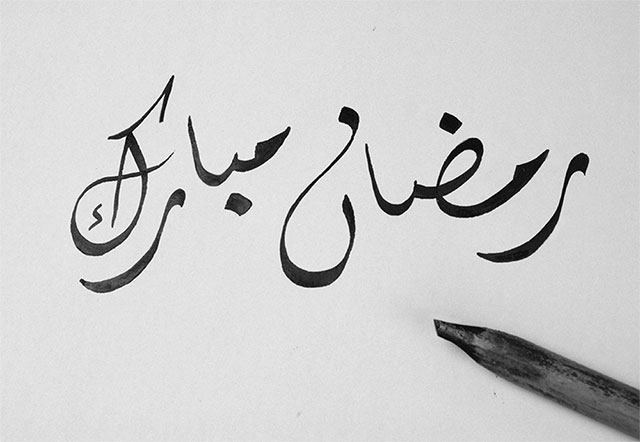 رمضان مبارك